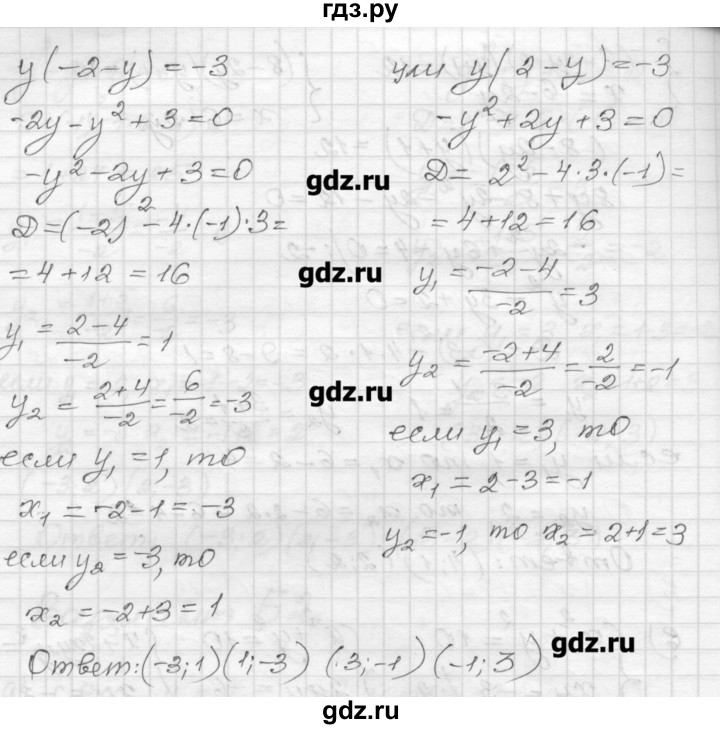 гдз.ру
y(-2-y)=-3
-2y-y²+3=0
-y²-2y+3=0
D=(-2)²-4·(-1)·3=
=4+12=16
y₁=(2-4)/(-2)=1
y₂=(2+4)/(-2)=6/(-2)=-3
если y₁=1, то
x₁=-2-1=-3
если y₂=-3, то
x₂=-2+3=1
или y(2-y)=-3
-y²+2y+3=0
D=2²-4·3·(-1)=
=4+12=16
y₁=(-2-4)/(-2)=3
y₂=(-2+4)/(-2)=2/(-2)=-1
если y₁=3, то
x₁=2-3=-1
y₂=-1, то x₂=2+1=3
Ответ:(-3;1)(1;-3) (3;-1) (-1;3)
gdz.ru
gdz.ru
gdz.ru
gdz.ru
gdz.ru